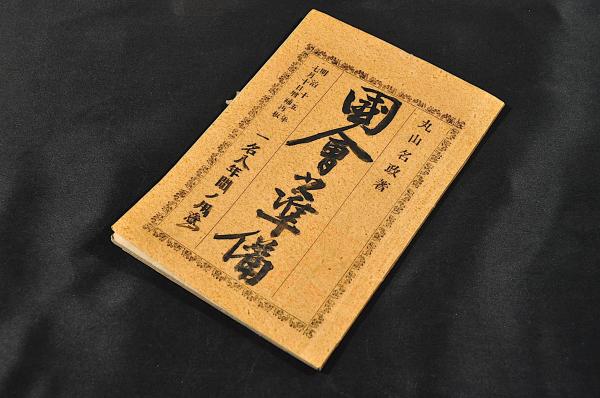 丸山名政著
國會之準備
一名八年間ノ用意
明治十五年
七月十日增補再板